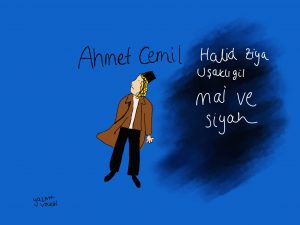 Ahmet Cemil
Halid Ziya
Uşaklıgil
mai ve
siyah